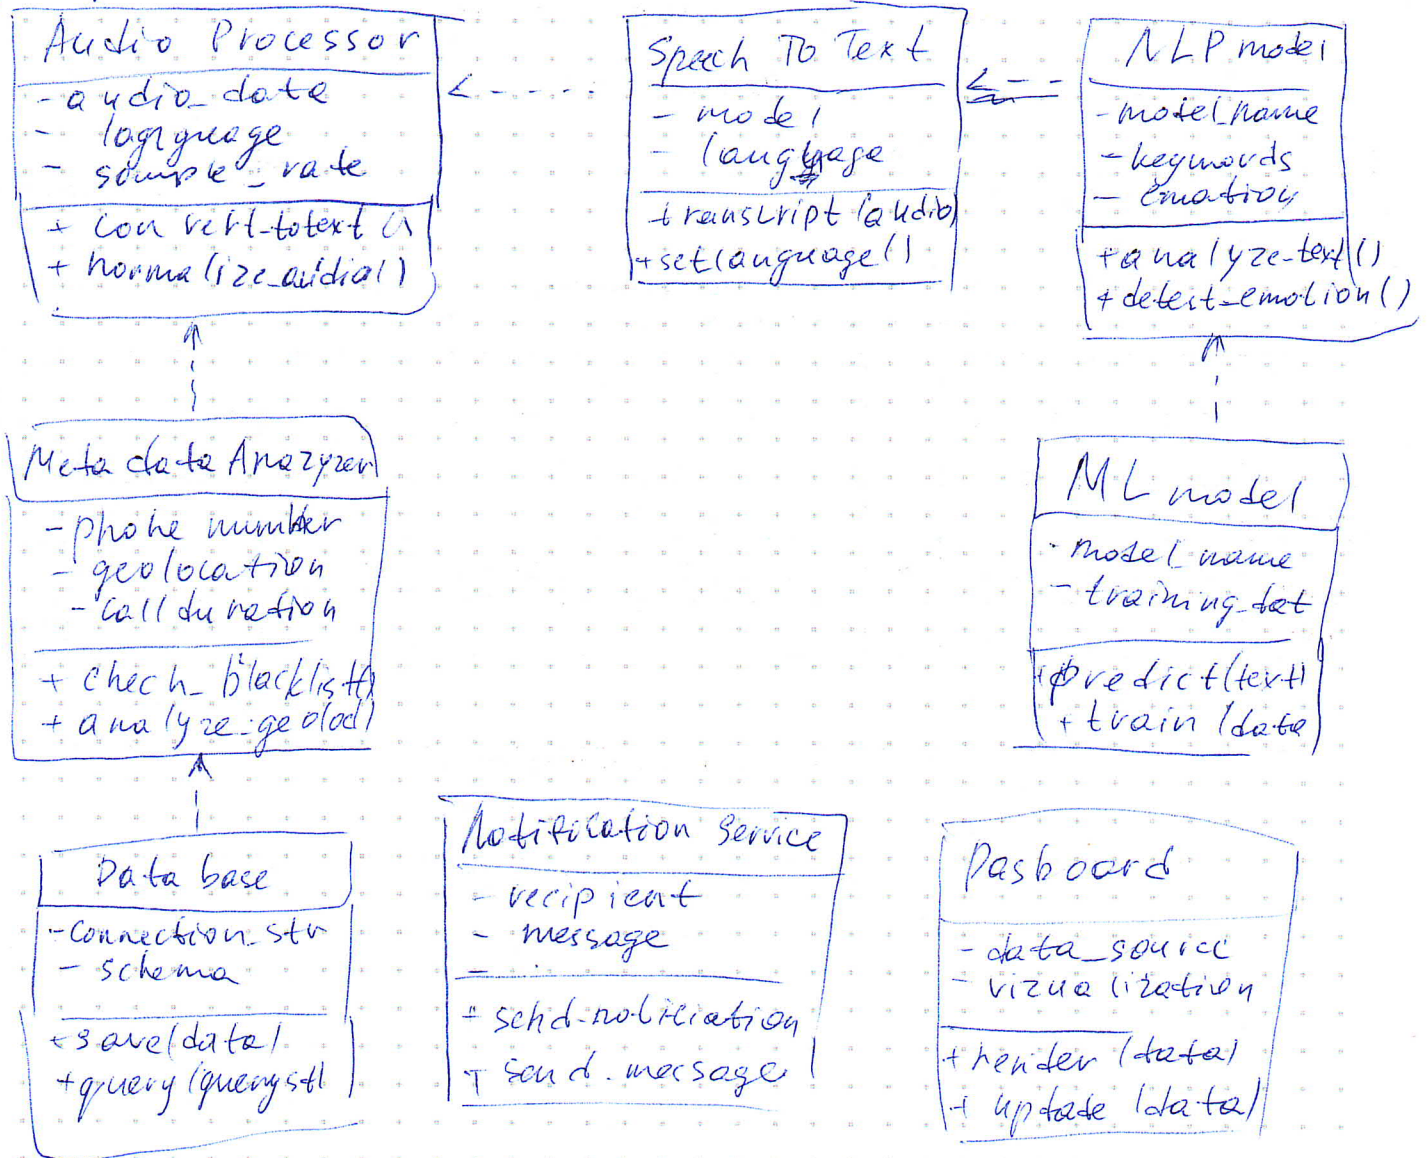 Audio Processor
- audio_data
- lagrguage
- sample_rate
+ convert_totext()
+ normalize_audio()
Speech To Text
- model
- language
+ transcript (audio)
+ setlanguage()
NLP model
- model_name
- keywords
- emotion
+ analyze_text()
+ detest_emotion()
Meta data Anazyzer
- phone number
- geolocation
- call duration
+ chech_blacklist()
+ analyze_geoloc()
ML model
- model_name
- training_dat
+ predict(text)
+ train (data)
Data base
- connection_str
- schema
+ save(data)
+ query(queryst)
Notification Service
- recipient
- message
-
+ send_notification
+ send_message
Dasboard
- data_source
- vizualization
+ render (data)
+ update (data)